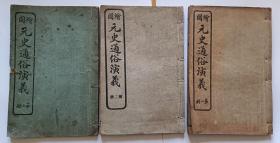 繪圖
元史通俗演義
繪圖
元史通俗演義
第二冊
繪圖
元史通俗演義